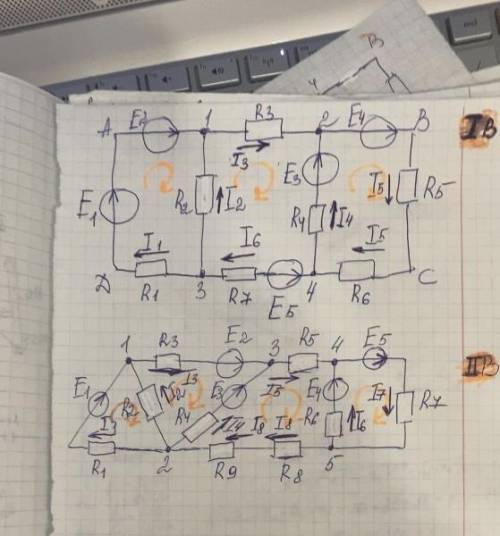 B
A E2 1 R3 2 E4 B IB
I3
E3
E1 R2 I2 R4 I4 I5 R5
I1 I6 I5
D R1 3 R7 E5 4 R6 C
1 R3 E2 3 R5 4 E5 IIB
I3 I5
E1 R2 I2 E3 E4 I7 R7
R4 I4 R6 I6
I1 I8 I8
R1 2 R9 R8 5